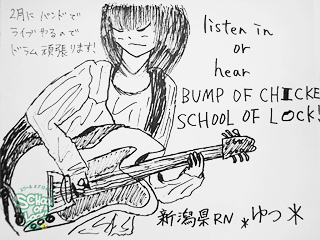 2月にバンドで
ライブやるので
ドラム頑張ります!
listen in
or
hear
BUMP OF CHICKE
SCHOOL OF LOCK!
SCHOOL
OF
LOCK!
新潟県RN *ゆつ*